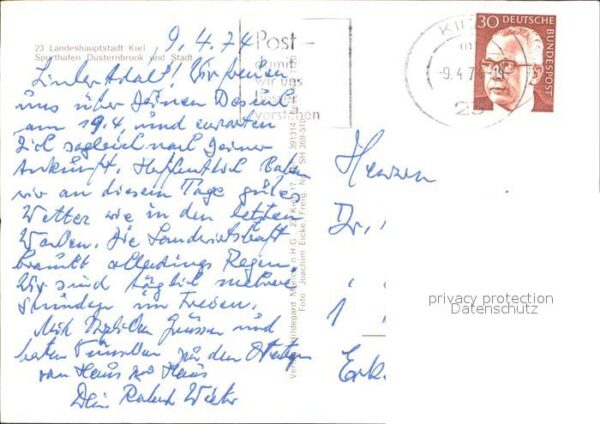 23 Landeshauptstadt Kiel
Sporthafen Düsternbrook und Stadt
9.4.74
Lieber Adolf! Wir freuen
uns über Deinen Besuch
am 19.4. und erwarten
Dich sogleich nach Deiner
Ankunft. Hoffentlich haben
wir an diesem Tage gutes
Wetter wie in den letzten
Wochen. Die Landwirtschaft
braucht allerdings Regen.
Wir sind täglich mehrere
Stunden im Freien.
Mit herzlichen Grüssen und
besten Wünschen zu den
von Haus zu Haus
Dein
Post-
damit
wir uns
verstehen
KIEL
-9.4.7
23
30 DEUTSCHE
BUNDESPOST
Herren
Dr.
1
privacy protection
Datenschutz